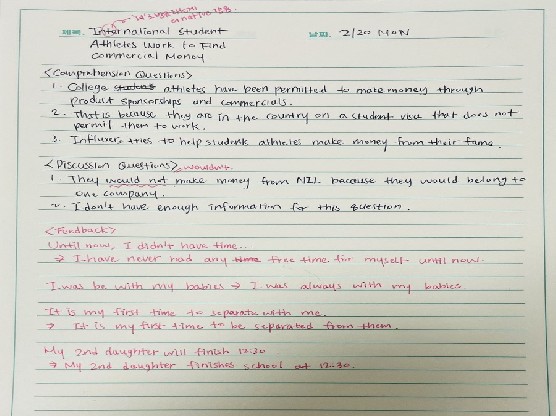 제목. International Student
날짜. 2/20 MON
Athletes Work to Find
Commercial Money
<Comprehension Questions>
1. College students athletes have been permitted to make money through
product sponsorships and commercials.
2. That is because they are in the country on a student visa that does not
permit them to work.
3. Influxer tries to help student athletes make money from their fame.
<Discussion Questions> wouldn't
1. They would not make money from NIL because they would belong to
one company.
2. I don't have enough information for this question.
<Feedback>
Until now, I didn't have time..
→ I have never had any time free time for myself until now.
I was be with my babies → I was always with my babies.
It is my first time to separate with me.
→ It is my first time to be separated from them.
My 2nd daughter will finish 12:30
→ My 2nd daughter finishes school at 12:30.